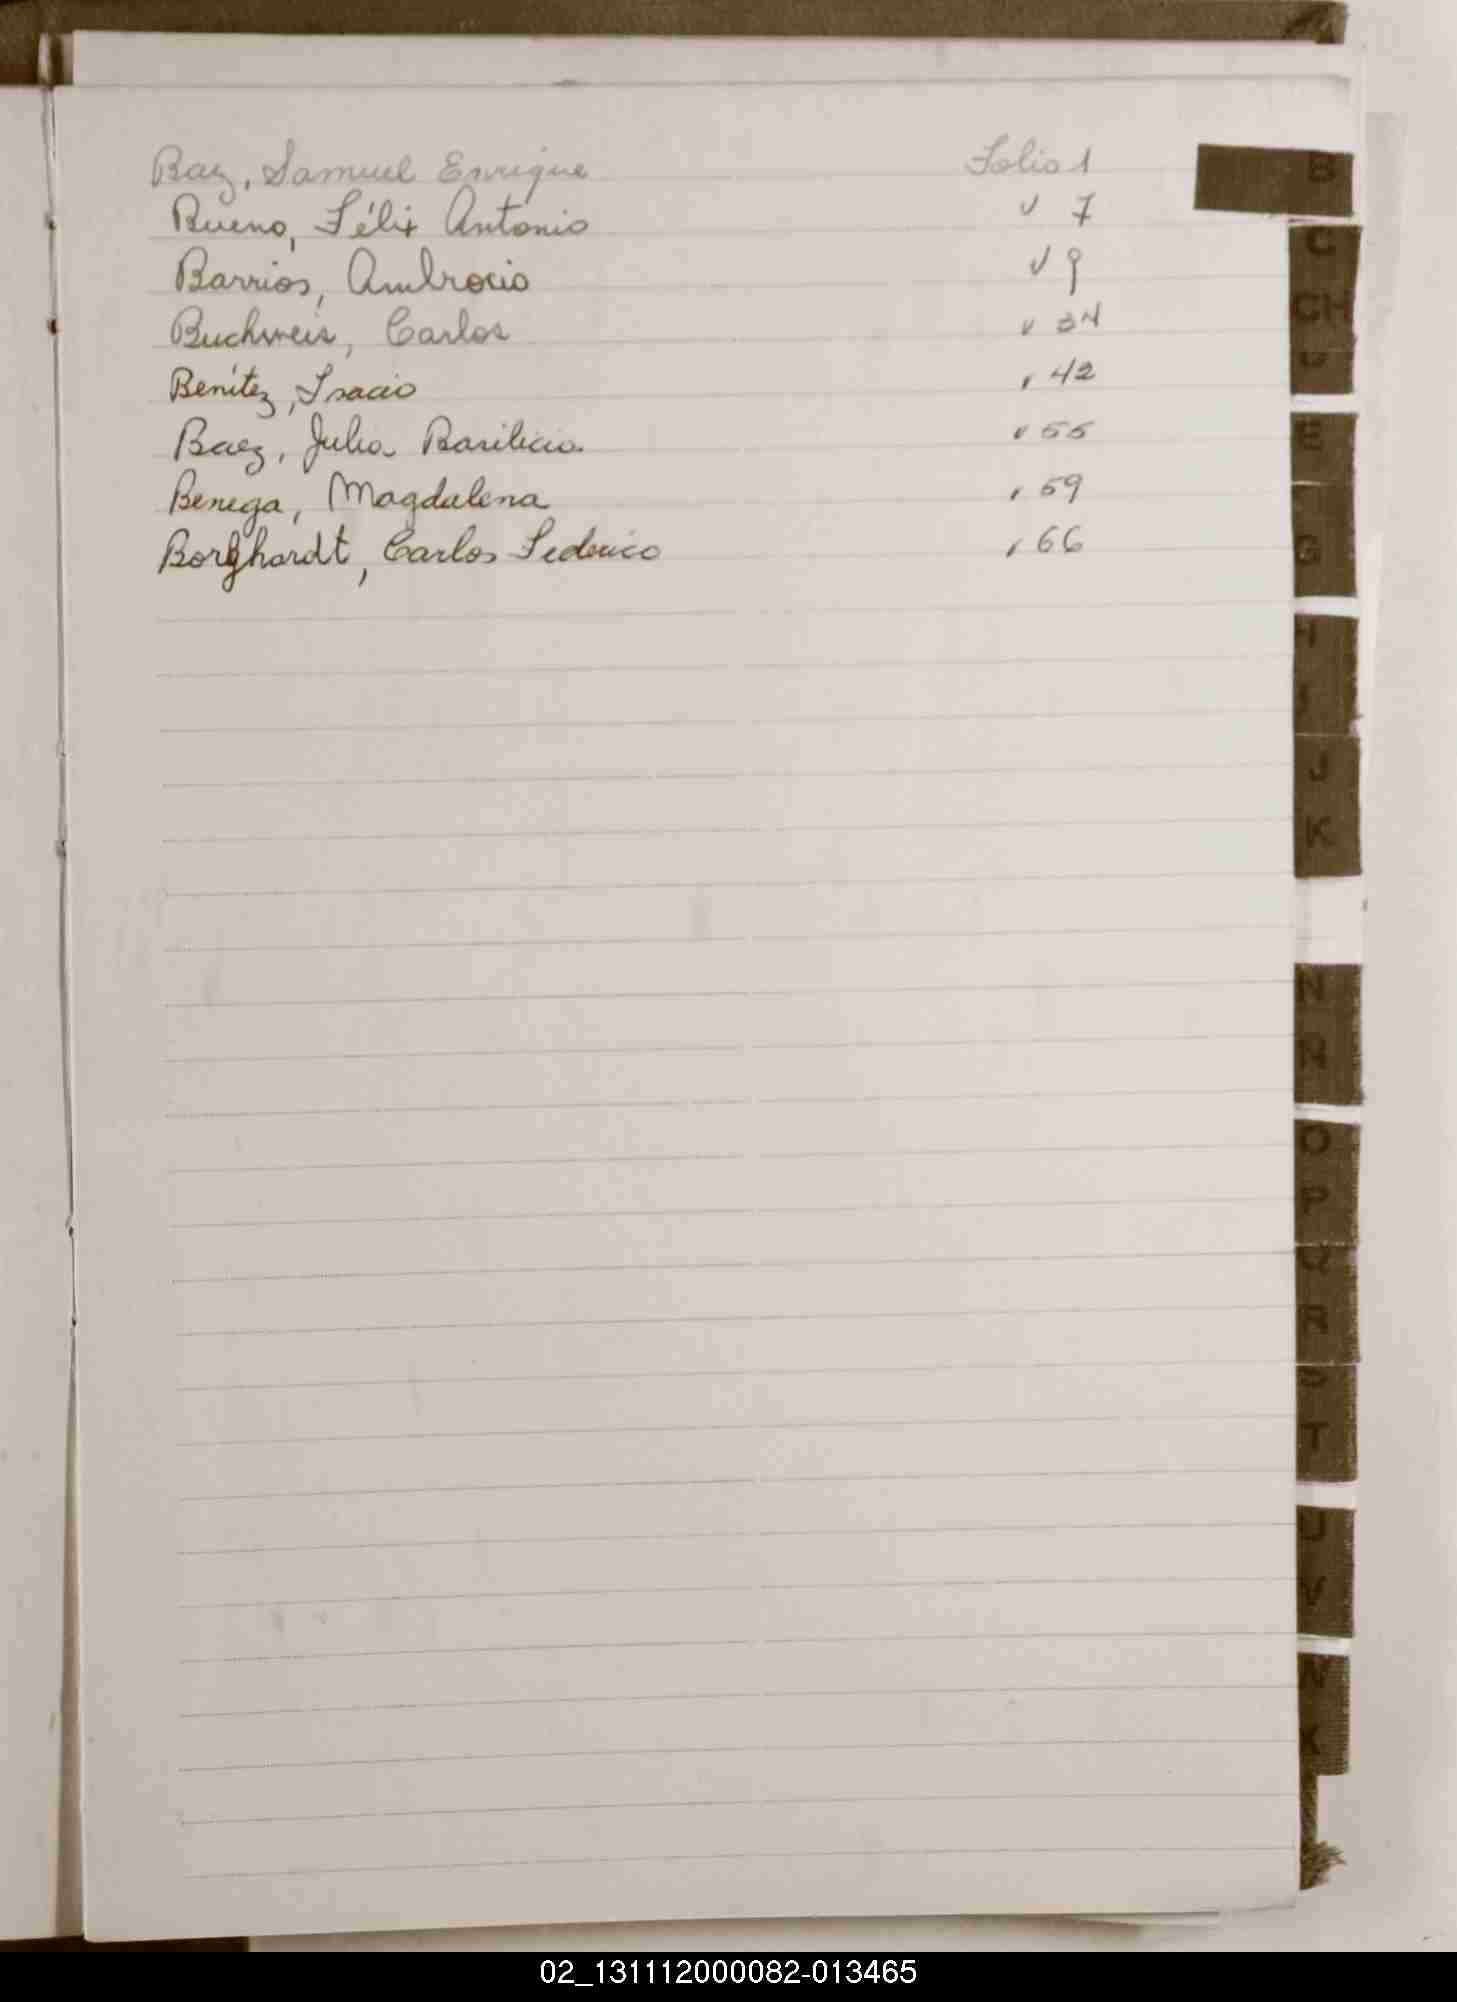 Baez, Samuel Enrique Folio 1
Bueno, Félix Antonio v 7
Barrios, Ambrocio v 9
Buchweis, Carlos v 34
Benítez, Isacio , 42
Baez, Julia Basilicia v 55
Benega, Magdalena , 59
Borghardt, Carlos Federico , 66
B
C
CH
E
G
H
J
K
N
O
P
Q
R
S
T
U
V
X
02_131112000082-013465